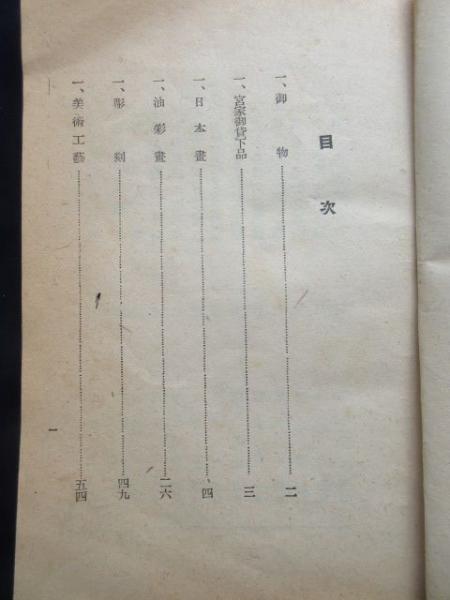 目次
一、御物 二
一、宮家御貸下品 三
一、日本畫 四
一、油彩畫 二六
一、彫刻 四九
一、美術工藝 五四
一